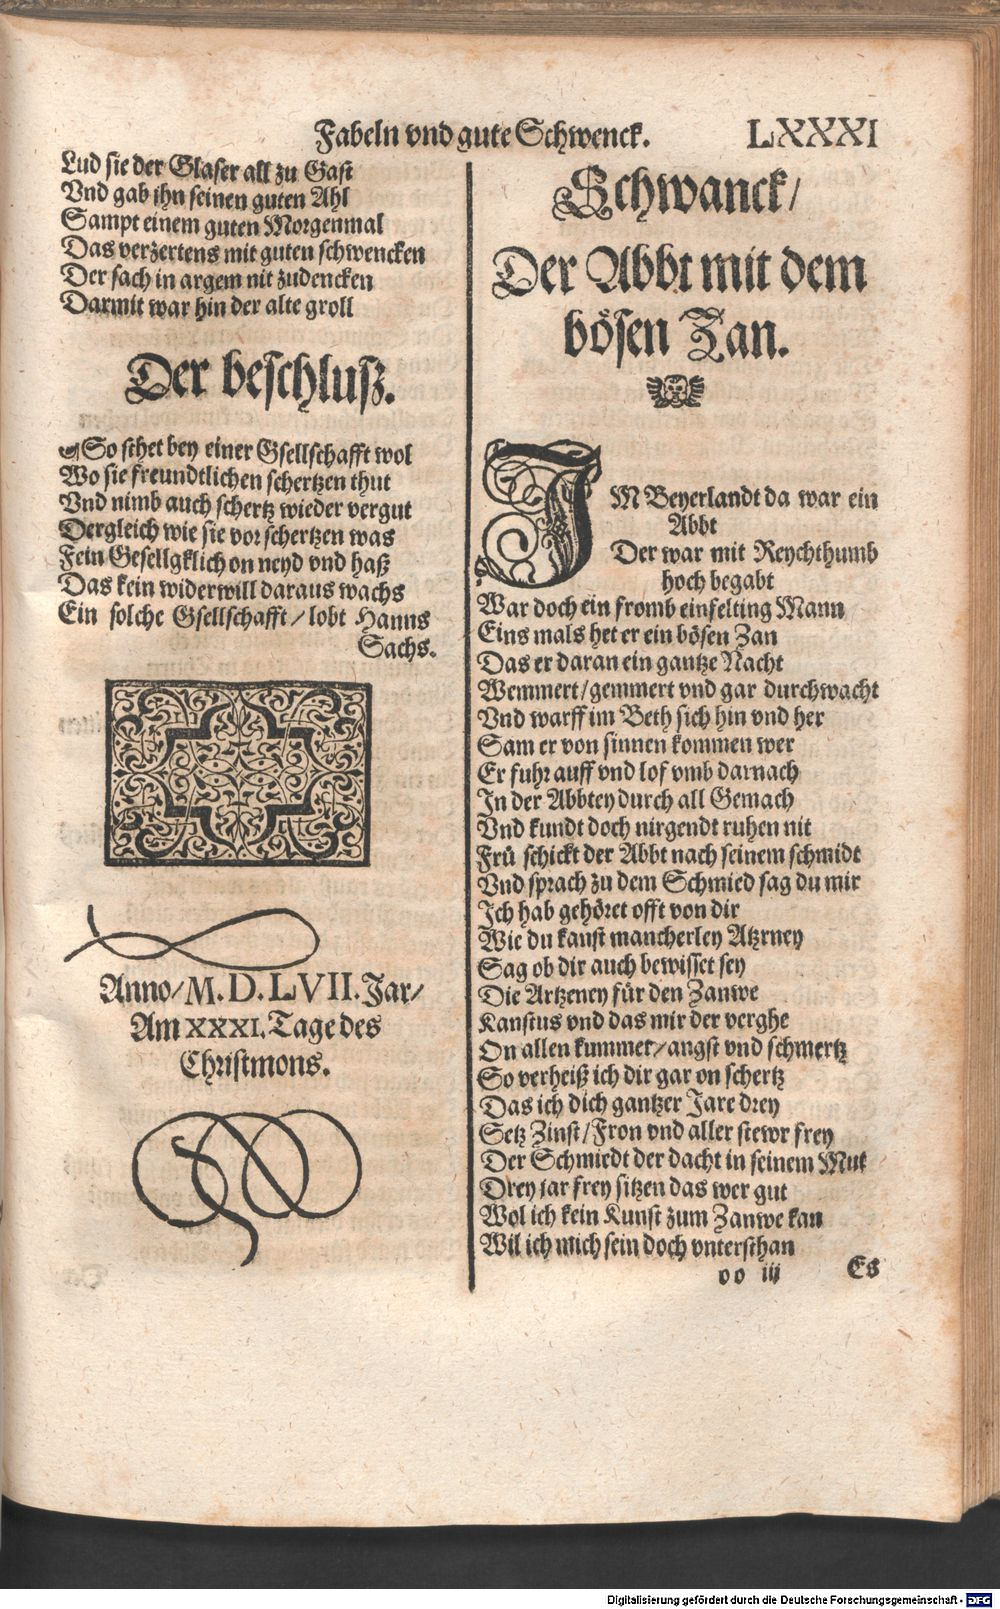 Fabeln vnd gute Schwenck. LXXXI
Lud sie der Glaser all zu Gast
Vnd gab ihn seinen guten Ahl
Sampt einem guten Morgenmal
Das verzertens mit guten schwencken
Der sach in argem nit zudencken
Darmit war hin der alte groll
Der beschluß.
So sthet bey einer Gsellschafft wol
Wo sie freundtlichen schertzen thut
Vnd nimb auch schertz wieder vergut
Dergleich wie sie vor schertzen was
Fein Gesellgklich on neyd vnd haß
Das kein widerwill daraus wachs
Ein solche Gsellschafft / lobt Hanns
Sachs.
Anno / M. D. LVII. Jar /
Am XXXI. Tage des
Christmons.
Schwanck /
Der Abbt mit dem
bösen Zan.
IM Beyerlandt da war ein
Abbt
Der war mit Reychthumb
hoch begabt
War doch ein fromb einfelting Mann
Eins mals het er ein bösen Zan
Das er daran ein gantze Nacht
Wemmert / gemmert vnd gar durchwacht
Vnd warff im Beth sich hin vnd her
Sam er von sinnen kommen wer
Er fuhr auff vnd lof vmb darnach
In der Abbtey durch all Gemach
Vnd kundt doch nirgendt ruhen nit
Frü schickt der Abbt nach seinem schmidt
Vnd sprach zu dem Schmied sag du mir
Ich hab gehöret offt von dir
Wie du kanst mancherley Atzrney
Sag ob dir auch bewisset sey
Die Artzeney für den Zanwe
Kanstus vnd das mir der verghe
On allen kummer / angst vnd schmertz
So verheiß ich dir gar on schertz
Das ich dich gantzer Jare drey
Setz Zinst / Fron vnd aller stewr frey
Der Schmiedt der dacht in seinem Mut
Drey jar frey sitzen das wer gut
Wol ich kein Kunst zum Zanwe kan
Wil ich mich sein doch vntersthan
oo iii Es
Digitalisierung gefördert durch die Deutsche Forschungsgemeinschaft - DFG